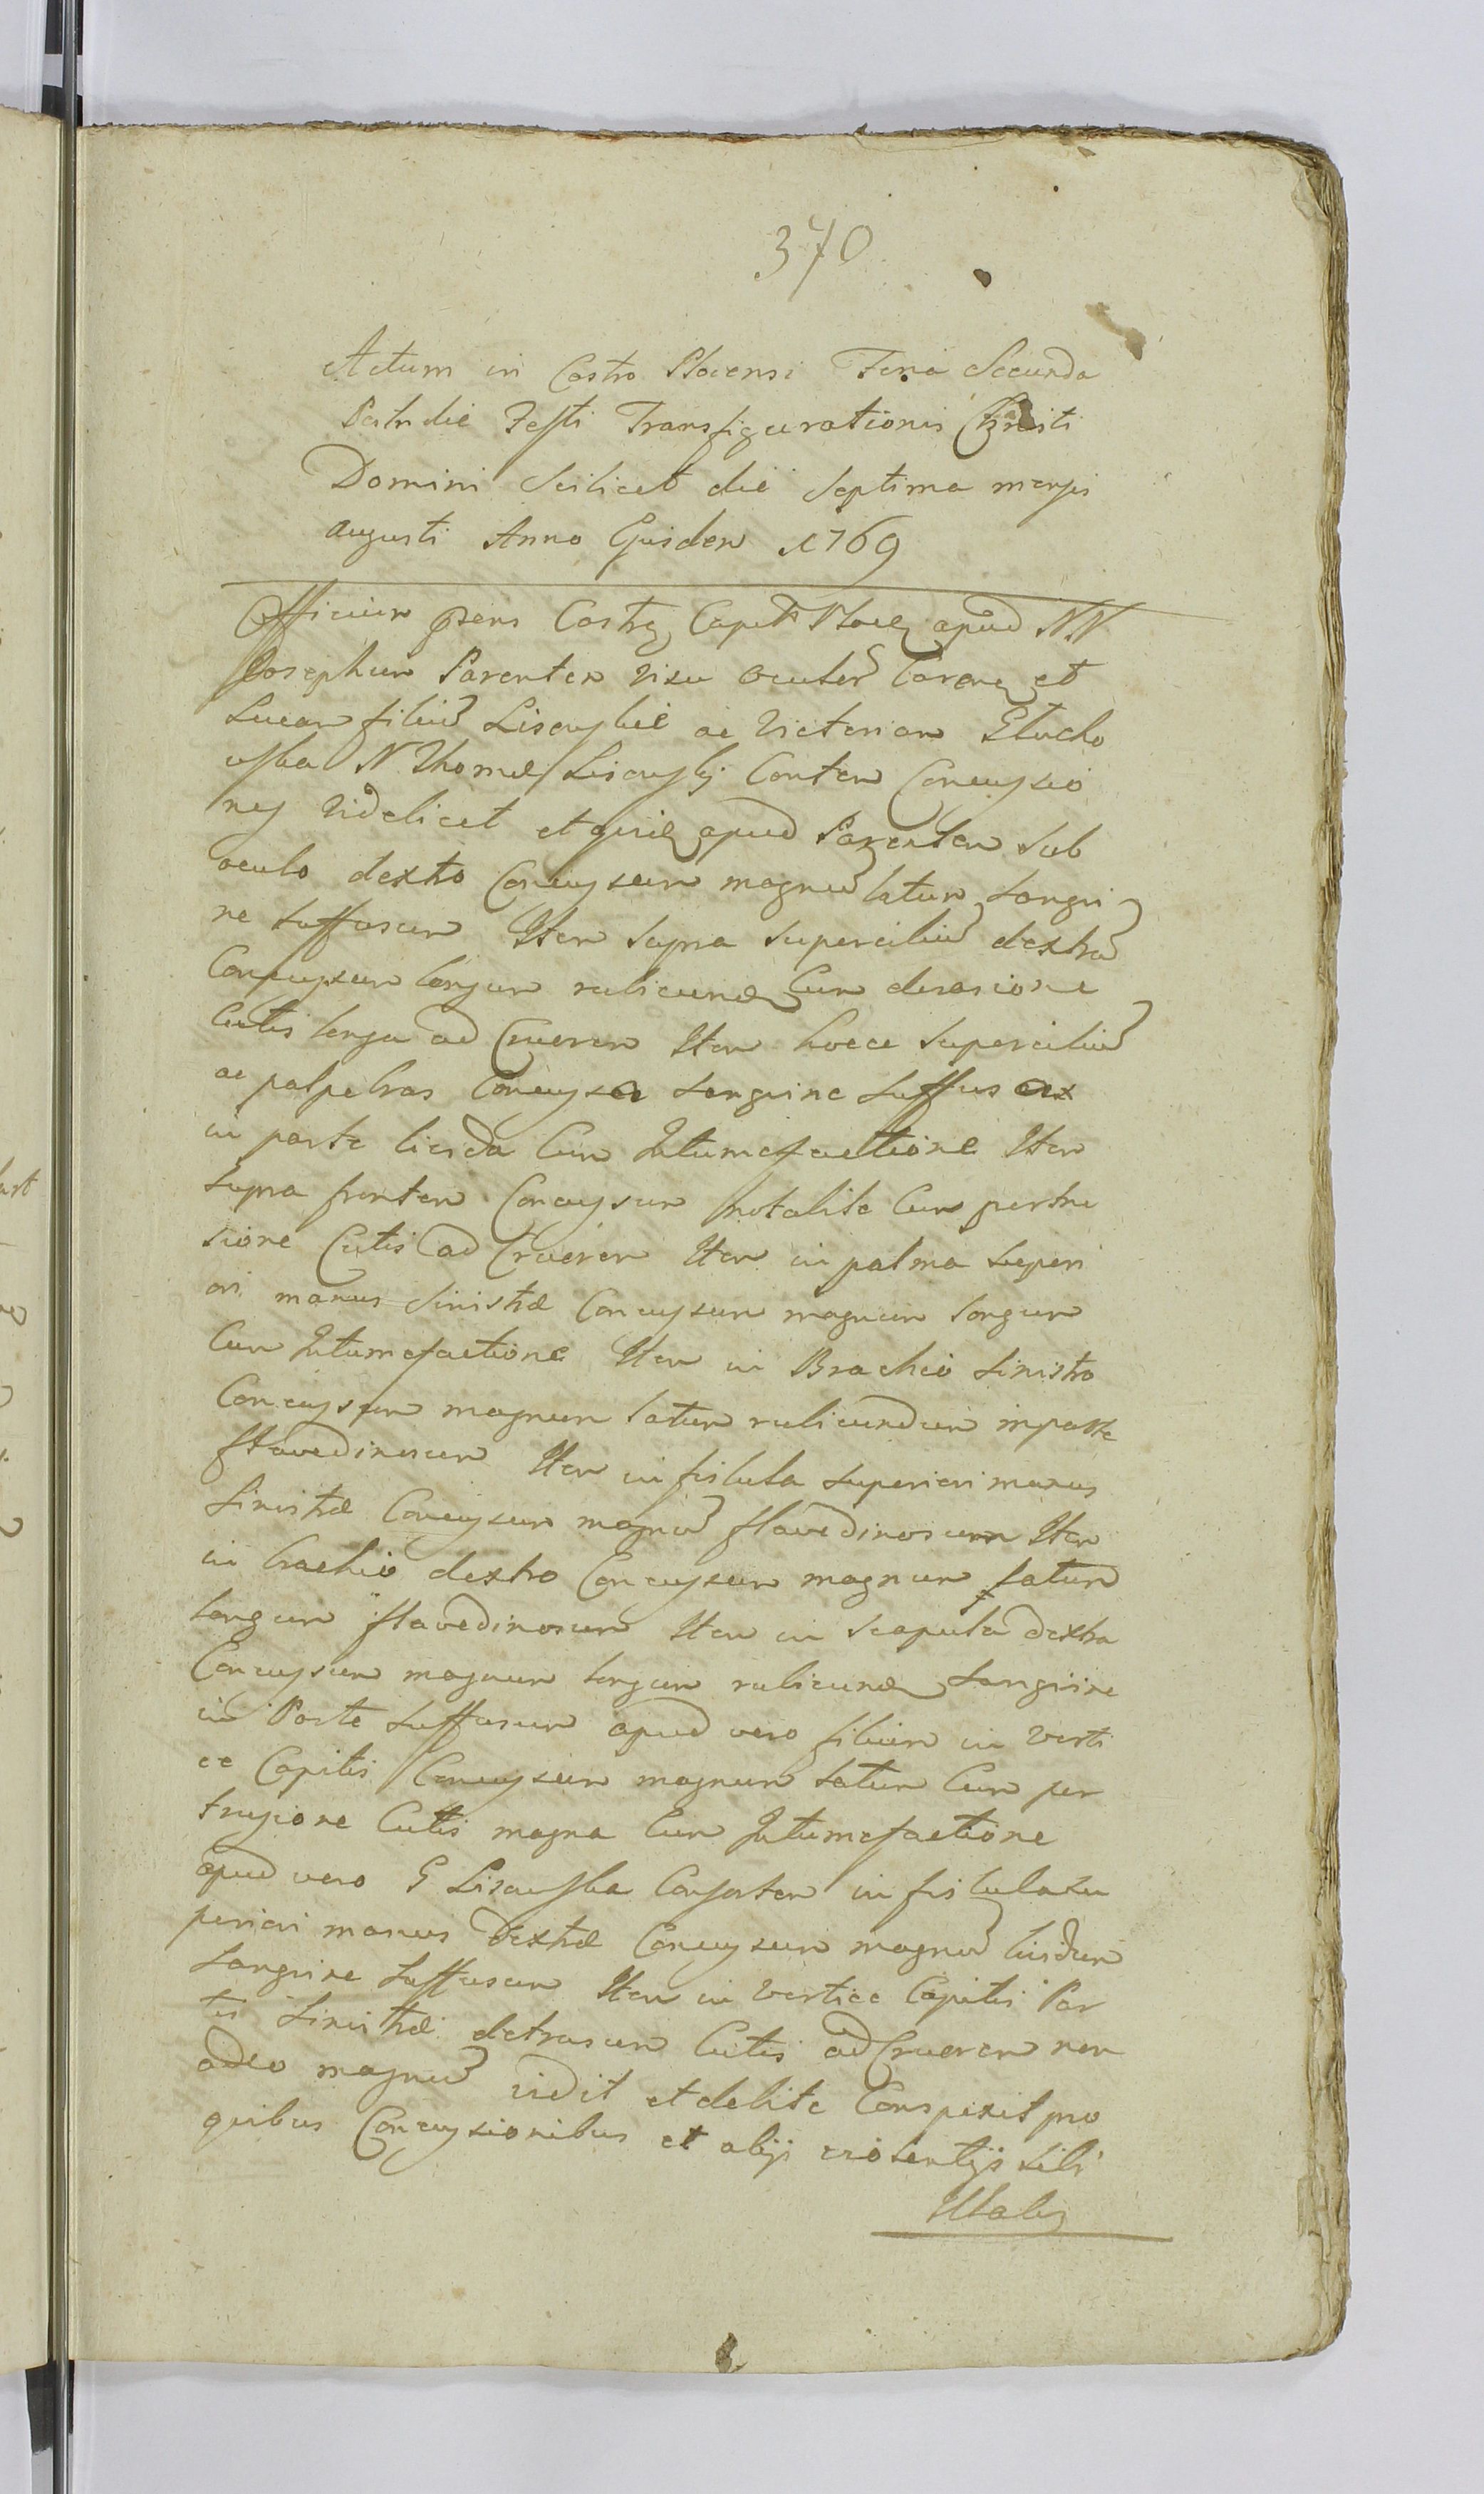 370
Actum in Castro Plocensi Feria Secunda
Postridie Festi Transfigurationis Christi
Domini Scilicet die Septima mensis
Augusti Anno Ejusdem 1769
Officium praens Castrẽ Capitlẽ Plocẽ apud NN
Josephum Parentem visu oculor̃ Carenẽ et
Lucam filiũ Lisowskie ac Victoriam Glucho
wska N Thomæ Lisowskij Contem Concussio
nes Videlicet et quidẽ apud Parentem Sub
oculo dextro Concussum magnũ latum Sangvi
ne suffusum Item Supra Supercilliũ dextrũ
Concussum longum rubicundũ Cum derasione
Cutis longa ad Cruorem Item hocce Supercilliũ
ac palpebras Concussa Sangvine Suffusas
in parte livida Cum Intumefactione Item
Supra frontem Concussum notabile Cum pertru
sione Cutis ad Cruorem Item in palma Superi
ori manus Sinistræ Concussum magnum longum
Cum Intumefactione Item in Brachio Sinistro
Concussum magnum latum rubicundum in parte
flavedinosum Item in fistula Superiori manus
Sinistræ Concussum magnũ flavedinosum Item
in brachio dextro Concussum magnum latum
longum flavedinosum Item in Scapula dextra
Concussum magnum longum rubicundũ Sangvine
in Parte Suffusum apud vero filium in Verti
ce Capitis Concussum magnum latum Cum per
trusione Cutis magna Cum Intumefactione
apud vero G Lisowska Consortem in fistula Su
periori manus dextræ Concussum magnũ lividum
Sangvine Suffusum Item in Vertice Capitis Par
tis Sinistræ detrusum Cutis ad Cruorem non
adeo magnũ vidit et debite Conspexit pro
quibus Concussionibus et alijs violentijs Sibi
Illatis